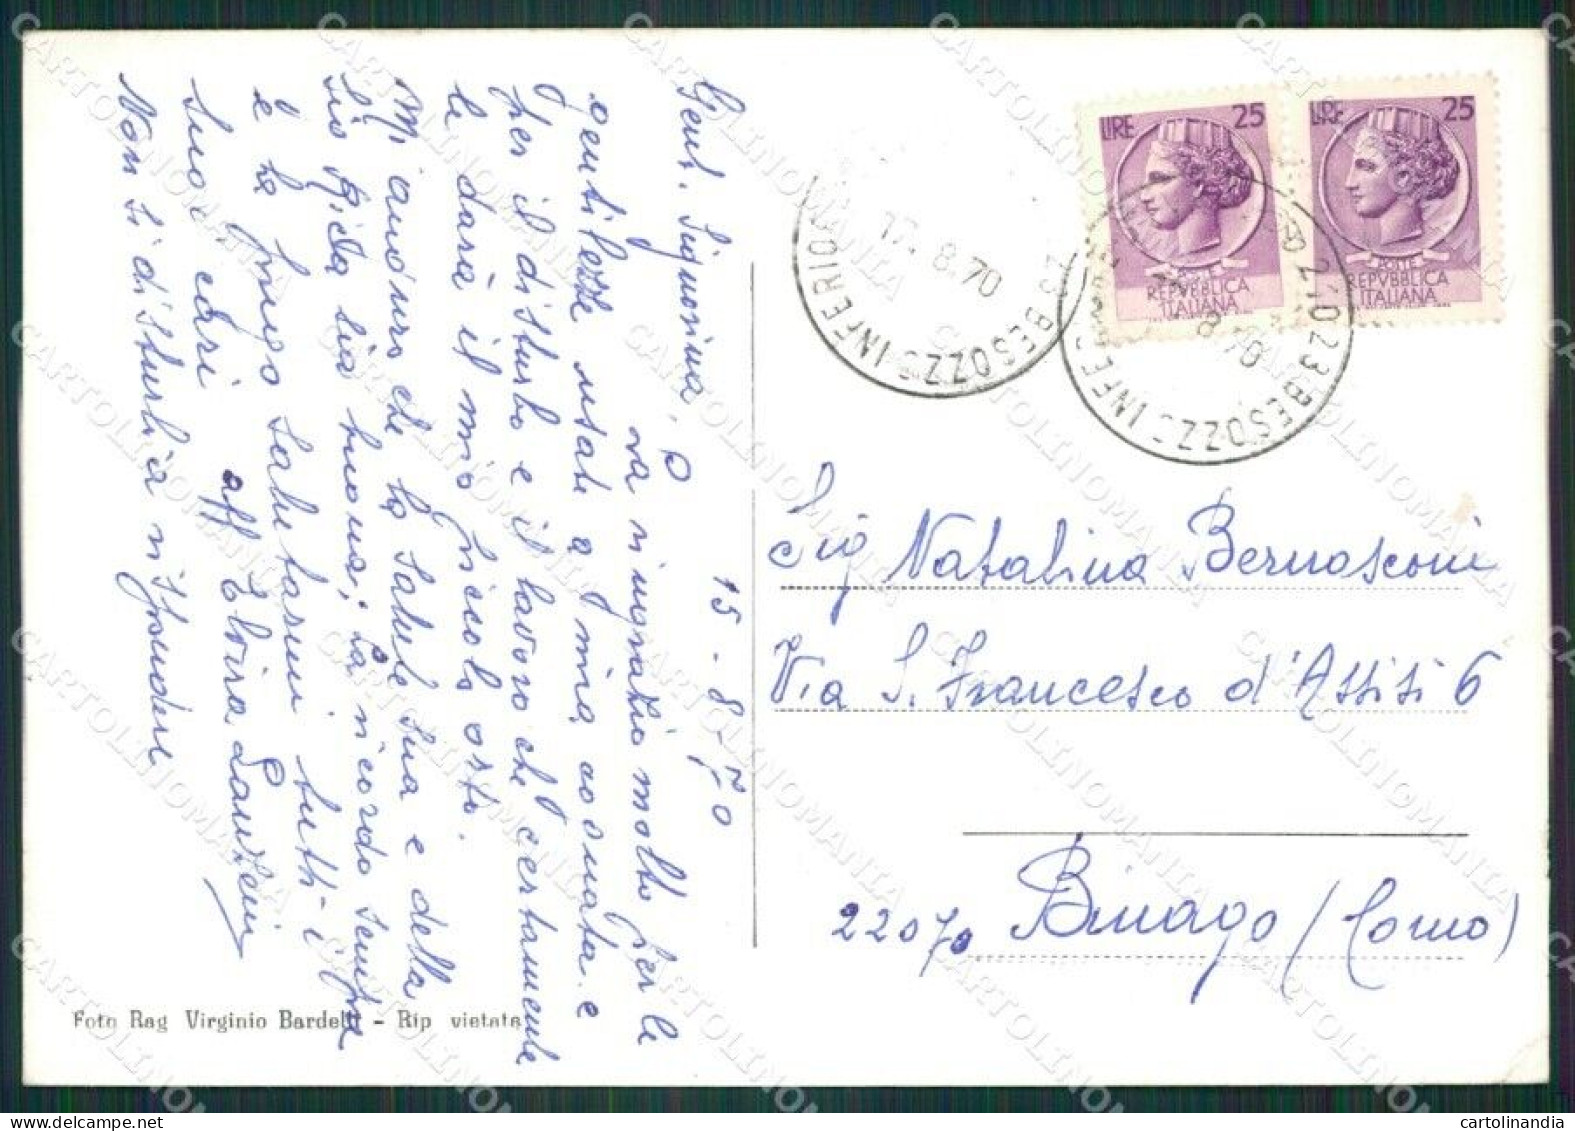 15-8-70
Gent. Signorina,
La ringrazio molto per le
gentilezze usate a mia cognata e
per il disturbo e il lavoro che certamente
le darà il mio piccolo orto.
Mi auguro che la salute Sua e della
Sua Zia sia buona; La ricordo sempre
e La prego salutarmi tutti i
Suoi cari
aff Elvira
Non si disturbi a rispondere
Foto Rag Virginio Bardelli - Rip vietata
LIRE 25
POSTE
REPVBBLICA
ITALIANA
LIRE 25
POSTE
REPVBBLICA
ITALIANA
17.8.70
23 BESOZZO INFERIORE
21023 BESOZZO INFERIORE
8.70
Sig Natalina Bernasconi
Via S. Francesco d'Assisi 6
22070 Binago (Como)
CARTOLINOMANIA
cartolinandia